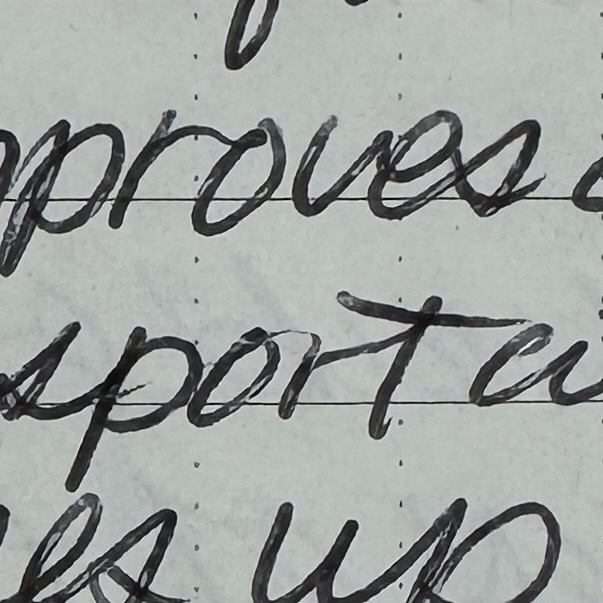 proves
sporta
es up